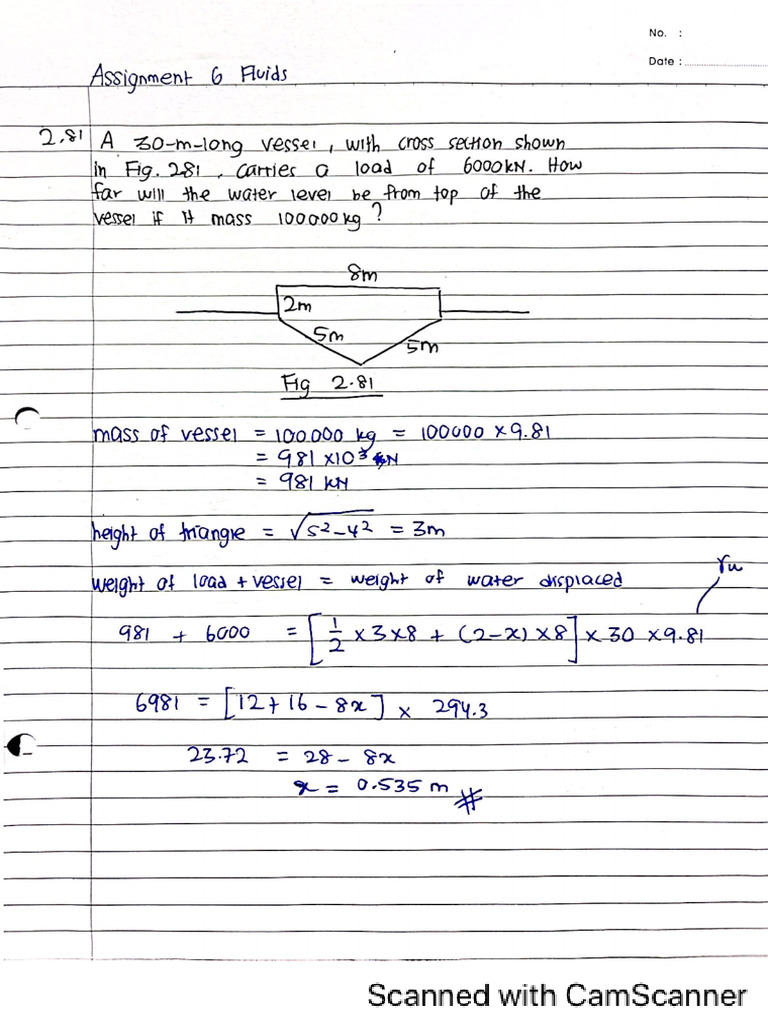 No. :
Date :
Assignment 6 Fluids
2.81 A 30-m-long vessel, with cross section shown
in Fig. 281, carries a load of 6000kN. How
far will the water level be from top of the
vessel if it mass 100000kg?
8m
2m
5m
5m
Fig 2.81
mass of vessel = 100000 kg = 100000 × 9.81
= 981 ×10³ N
= 981 kN
height of triangle = √5²-4² = 3m
γw
weight of load + vessel = weight of water displaced
981 + 6000 = [1/2 × 3 × 8 + (2-x) × 8] × 30 × 9.81
6981 = [12+16-8x] × 294.3
23.72 = 28 - 8x
x = 0.535 m #
Scanned with CamScanner